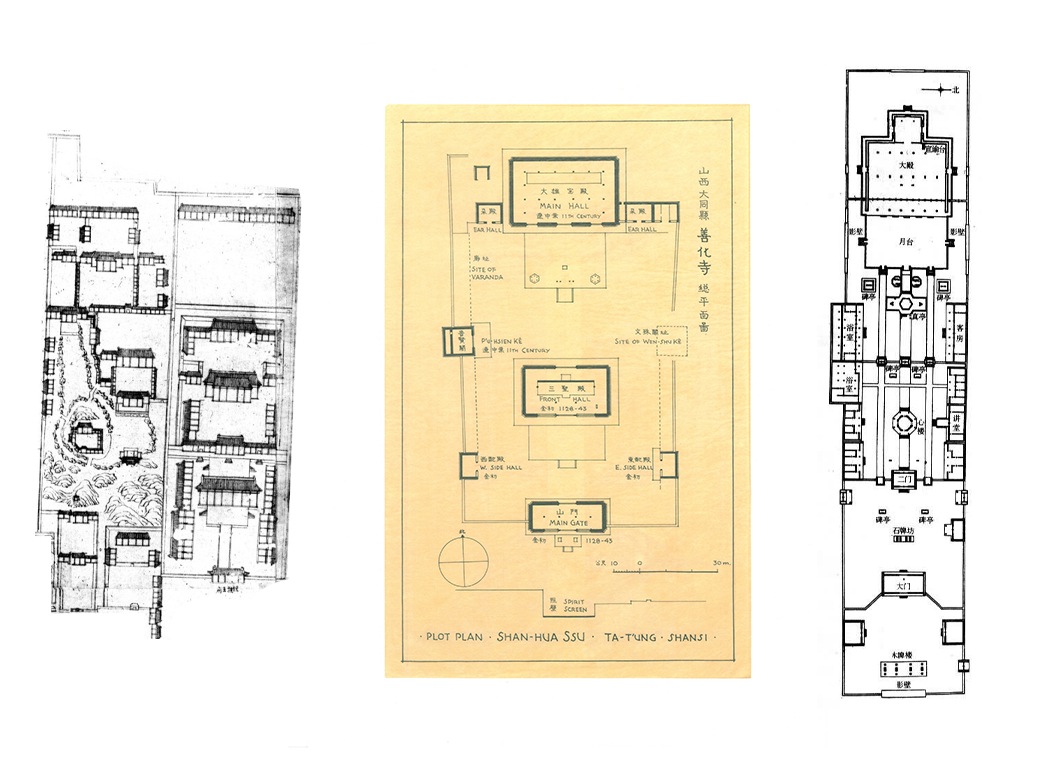 山西大同縣 善化寺 總平面圖
大雄寶殿
MAIN HALL
遼中葉 11TH CENTURY
朵殿
EAR HALL
朵殿
EAR HALL
廊址
SITE OF
VARANDA
普賢閣
P'U-HSIEN KÊ
遼中葉 11TH CENTURY
文殊閣址
SITE OF WEN-SHU KÊ
三聖殿
FRONT HALL
金初 1128-43
西配殿
W. SIDE HALL
金初
東配殿
E. SIDE HALL
金初
山門
MAIN GATE
金初 1128-43
公尺 10 0 30 m.
SPIRIT
SCREEN
· PLOT PLAN · SHAN-HUA SSU · TA-T'UNG · SHANSI ·
北
宣谕台
大殿
影壁
影壁
月台
碑亭
碑亭
真亭
浴室
客房
碑亭
碑亭
浴室
讲堂
心楼
二门
碑亭
碑亭
石牌坊
大门
木牌楼
影壁